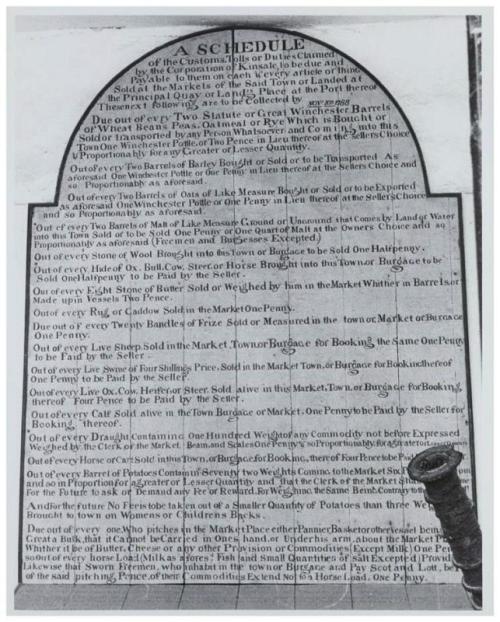 A SCHEDULE
of the Customs, Tolls or Duties Claimed
by the Corporation of Kinsale, to be due and
Payable to them on each & every article or thing
Sold at the Markets of the Said Town or Landed at
the Principal Quay or Landg Place at the Port thereof
Thesenext following are to be Collected by
Due out of evry Two Statute or Great Winchester Barrels
of Wheat Beans Peas, Oatmeal or Rye Which is Bought or
Sold or Transported by any Person Whatsoever and Coming into this
Town One Winchester Pottle, or Two Pence in Lieu thereof at the Sellers Choice
& Proportionably for any Greater or Lesser Quantity.
Out of every Two Barrels of Barley Bought or Sold or to be Transported As
aforesaid One Winchester Pottle or One Penny in Lieu thereof at the Sellers Choice and
so Proportionably as aforesaid.
Out of every Two Barrels of Oats of Like Measure Bought or Sold or to be Exported
as aforesaid One Winchester Pottle or One Penny in Lieu thereof at the Sellers Choice
and so Proportionably as aforesaid.
Out of every Two Barrels of Malt of Like Measure Ground or Unground that Comes by Land or Water
into this Town Sold or to be Sold One Penny or One Quart of Malt at the Owners Choice and so
Proportionably as aforesaid (Freemen and Burgesses Excepted.)
Out of every Stone of Wool Brought into this Town or Burgage to be Sold One Halfpenny.
Out of every Hide of Ox, Bull, Cow, Steer, or Horse Brought into this Town, or Burgage to be
Sold One Halfpenny to be Paid by the Seller.
Out of every Eight Stone of Butter Sold or Weighed by him in the Market Whither in Barrels, or
Made up in Vessels Two Pence.
Out of every Rug or Caddow Sold in the Market One Penny.
Due out of every Twenty Bandles of Frize Sold or Measured in the town or Market or Burgage
One Penny.
Out of every Live Sheep Sold in the Market, Town, or Burgage for Booking the Same One Penny
to be Paid by the Seller.
Out of every Live Swine of Four Shillings Price, Sold in the Market Town, or Burgage for Booking thereof
One Penny to be Paid by the Seller.
Out of every Live Ox, Cow, Heifer, or Steer, Sold alive in this Market, Town, or Burgage for Booking,
thereof Four Pence to be Paid by the Seller.
Out of every Calf Sold alive in the Town Burgage or Market, One Penny to be Paid by the Seller for
Booking thereof.
Out of every Draught Containing One Hundred Weight of any Commodity not before Expressed
Weighed by the Clerk of the Market Beam, and Scales One Penny & so Proportionably, for a greater
Out of every Horse or Carr Sold in this Town, or Burgage for Booking, thereof Four Pence to be Paid
Out of every Barrel of Potatoes Containing Seventy two Weights Coming to the Market Six
and so in Proportion for a greater or Lesser Quantity and that the Clerk of the Market
For the Future to ask or Demand any Fee or Reward, For Weighing the Same Being Contrary to
And For the future No Fees to be taken out of a Smaller Quantity of Potatoes than three
Brought to town on Womens or Childrens Backs.
Due out of every one, Who pitches in the Market Place either Pannier Basket or other Vessel
Great a Bulk, that it Cannot be Carried in Ones hand, or Under his arm, about the Market
Whither it be of Butter, Cheese or any other Provision or Commodities (Except Milk) One
so out of every horse Load (Milk as afores'd Fish and Small Quantities of salt Excepted)
Likewise that Sworn Freemen, who inhabit in the town or Burgage and Pay Scot and Lott, be
of the said pitching Pence, of their Commodities Extend Not to a Horse Load, One Penny.